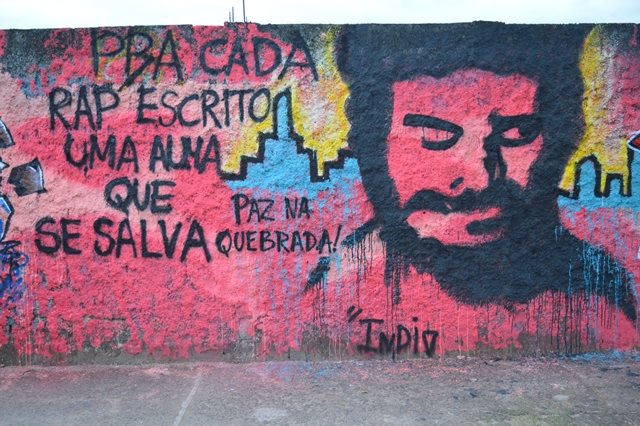 PBA CADA
RAP ESCRITO
UMA ALMA
QUE
SE SALVA
PAZ NA
QUEBRADA!
"INDIO